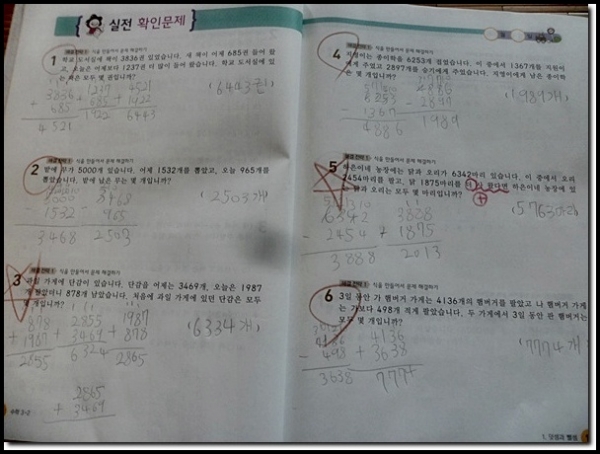 실전 확인문제
해결전략 1 식을 만들어서 문제 해결하기
1 학교 도서실에 책이 3836권 있었습니다. 새 책이 어제 685권 들어 왔
고, 오늘은 어제보다 1237권 더 많이 들어 왔습니다. 학교 도서실에 있
는 책은 모두 몇 권입니까?
(6443권)
3836 1237 4521
+ 685 + 685 + 1922
4521 1922 6443
해결전략 1 식을 만들어서 문제 해결하기
2 밭에 무가 5000개 있습니다. 어제 1532개를 뽑았고, 오늘 965개를
뽑았습니다. 밭에 남은 무는 몇 개입니까?
(2503개)
5000 3468
- 1532 - 965
3468 2503
해결전략 1 식을 만들어서 문제 해결하기
3 과일 가게에 단감이 있습니다. 단감을 어제는 3469개, 오늘은 1987
개 팔았더니 878개 남았습니다. 처음에 과일 가게에 있던 단감은 모두
몇 개입니까?
(6334개)
878 2855 1987
+ 1987 + 3469 + 878
2855 6324 2865
2865
+ 3469
수학 3-2
4 해결전략 1 식을 만들어서 문제 해결하기
지영이는 종이학을 6253개 접었습니다. 이 중에서 1367개를 지원이
에게 주었고 2897개를 슬기에게 주었습니다. 지영이에게 남은 종이학
은 몇 개입니까?
(1989개)
6253
- 1367 - 2897
4886 1989
5 해결전략 1 식을 만들어서 문제 해결하기
하은이네 농장에는 닭과 오리가 6342마리 있습니다. 이 중에서 오리
2454마리를 팔고, 닭 1875마리를 더 샀다면 하은이네 농장에 있
닭과 오리는 모두 몇 마리입니까?
(5763마리)
6342
- 2454 + 1875
3888 2013
6 해결전략 1 식을 만들어서 문제 해결하기
3일 동안 가 햄버거 가게는 4136개의 햄버거를 팔았고 나 햄버거 가게
는 가보다 498개 적게 팔았습니다. 두 가게에서 3일 동안 판 햄버거는
모두 몇 개입니까?
(7774개)
4136 4136
- 498 + 3638
3638 7774
1. 덧셈과 뺄셈